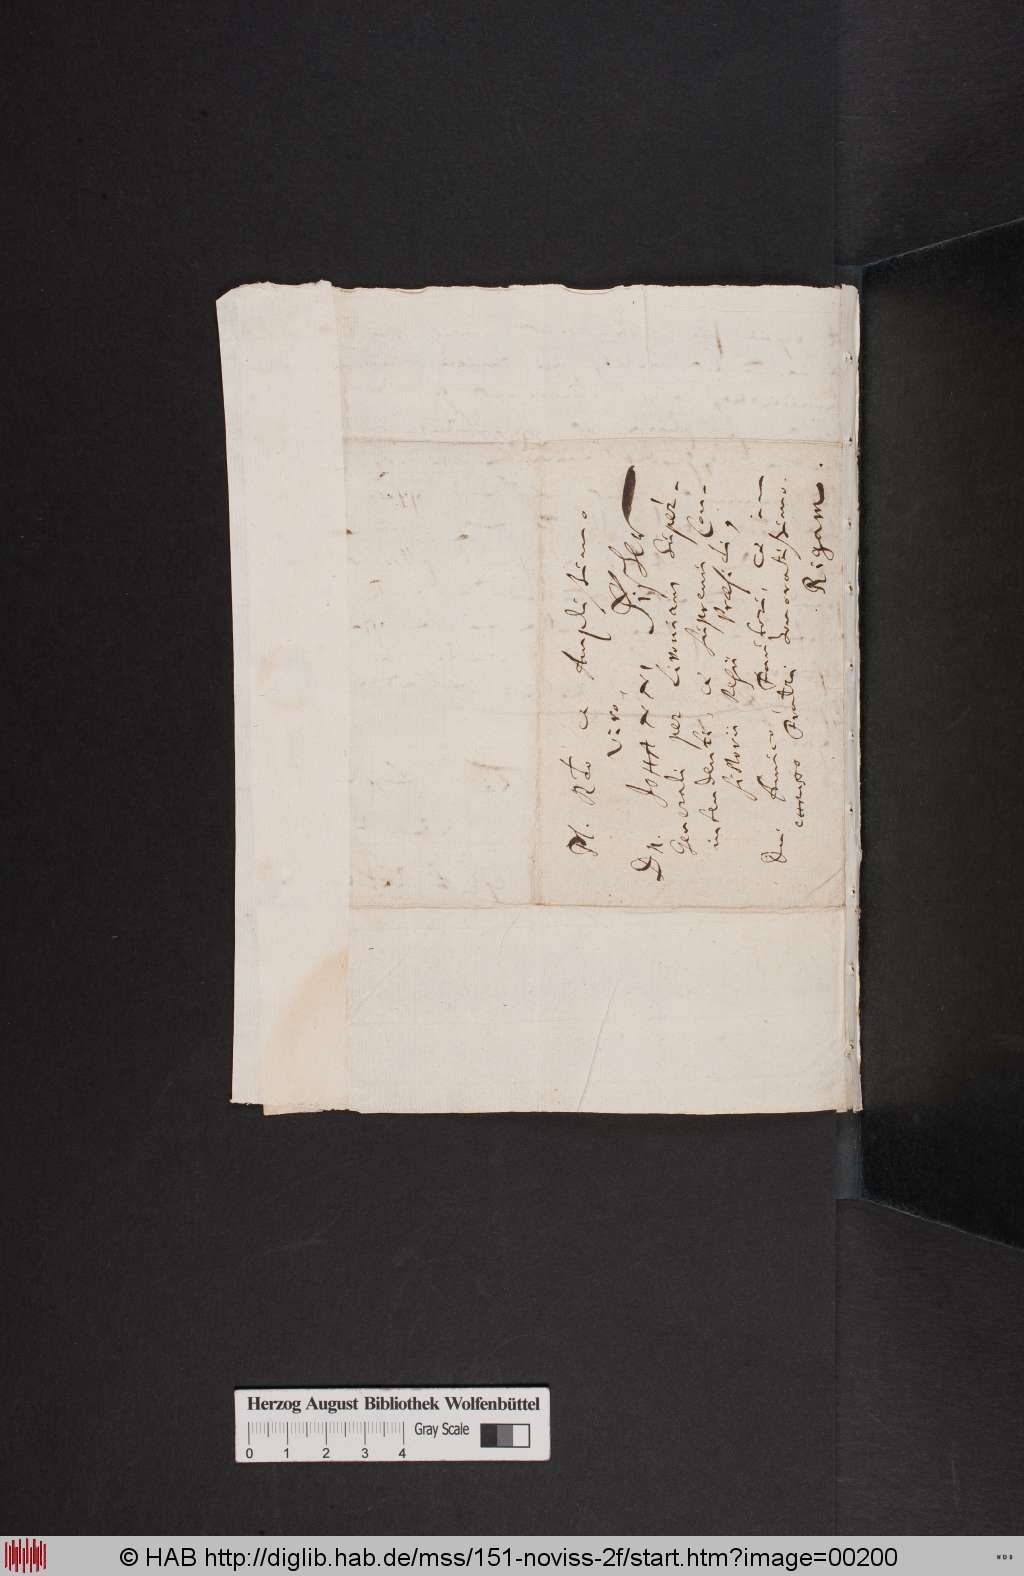 Pl. Rdo ac Amplissimo
Viro,
Dn. JOHANNI Fischer
Generali per Livoniam Super-
intendenti, ac supremi Con-
sistorii Regii Praesidi,
Dno Amico, Fautori, ac in
Christo Fratri honoratissimo.
Rigam.
Herzog August Bibliothek Wolfenbüttel
0 1 2 3 4
Gray Scale
© HAB http://diglib.hab.de/mss/151-noviss-2f/start.htm?image=00200